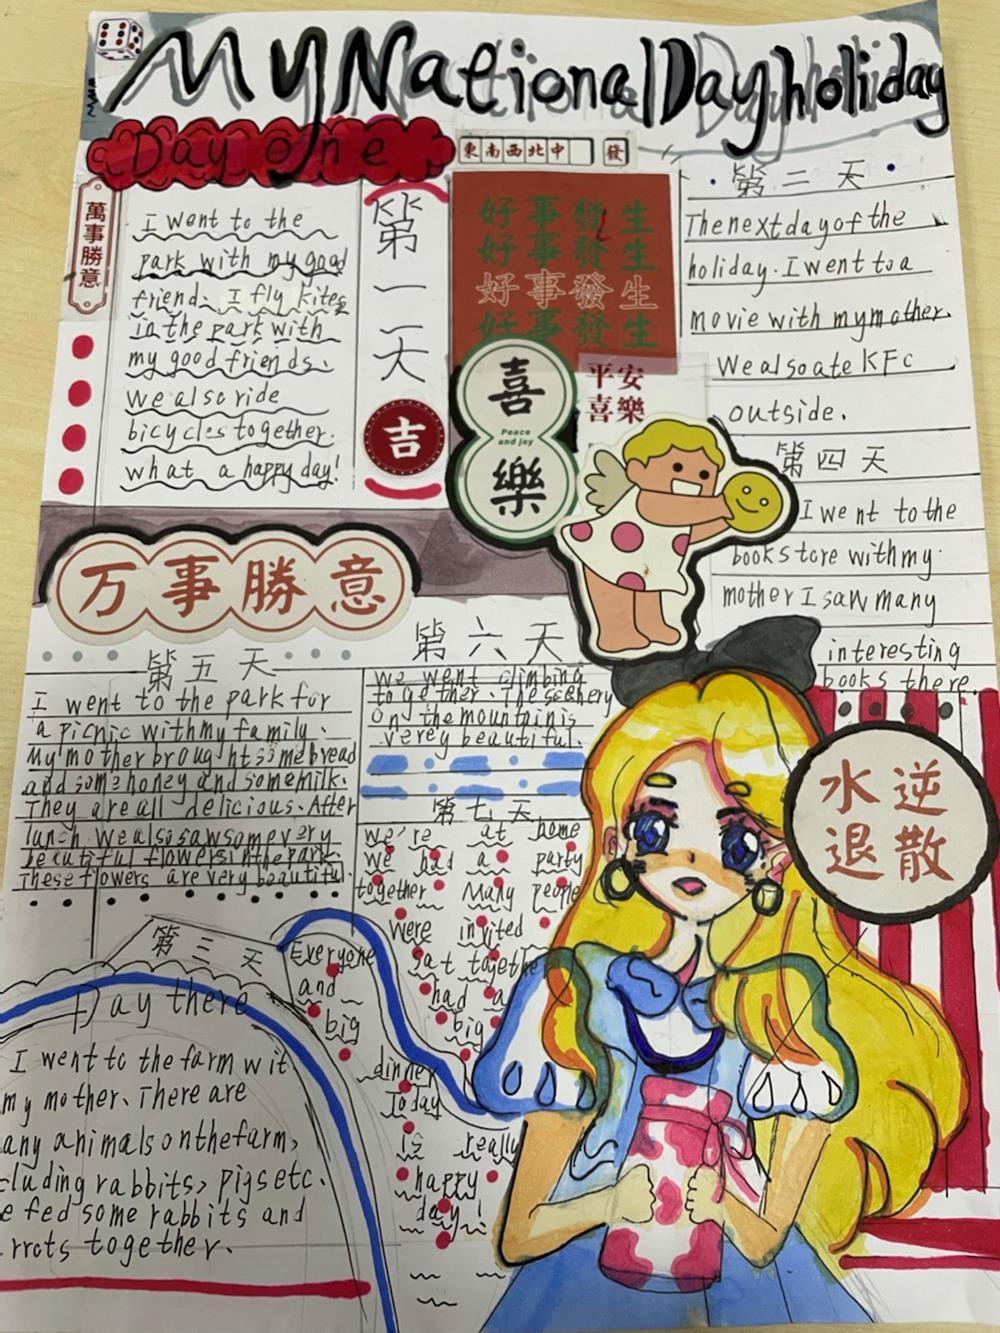 My National Day holiday
Day one
東南西北中 發
萬事勝意
I went to the
park with my good
friend. I fly kites
in the park with
my good friends.
We also ride
bicycles together.
what a happy day!
第一天
吉
好事發生
好事發生
好事發生
好事發生
喜
Peace
and joy
樂
平安
喜樂
第二天
The next day of the
holiday. I went to a
movie with my mother.
We also ate KFC
outside.
第四天
I went to the
bookstore with my
mother I saw many
interesting
books there.
万事勝意
第五天
I went to the park for
a picnic with my family.
My mother brought some bread
and some honey and some milk.
They are all delicious. After
lunch. We also saw some very
beautiful flowers in the park
These flowers are very beautiful.
第六天
We went climbing
together. The scenery
on the mountain is
verey beautiful.
第七天
We're at home
We had a party
together Many people
were invited
Everyone sat together
and had a
big big
dinner
Today
is really
happy
day!
水逆
退散
第三天
Day there
I went to the farm wit
my mother. There are
any animals on the farm,
cluding rabbits, pigs etc.
e fed some rabbits and
rrots together.